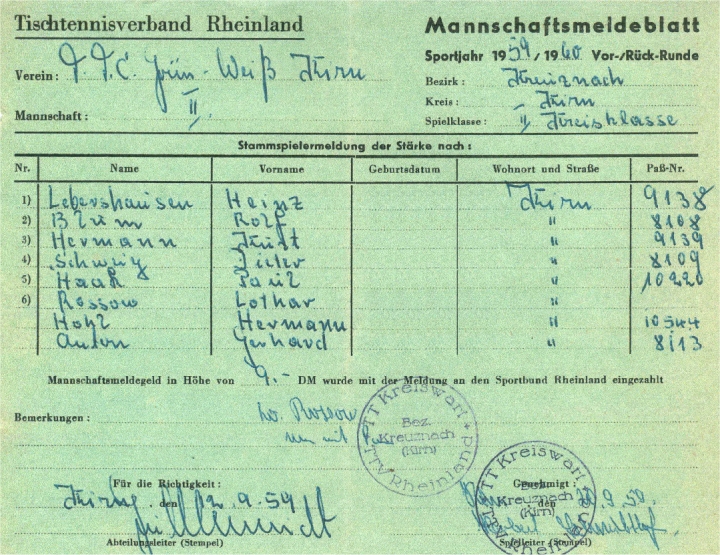 Tischtennisverband Rheinland
Mannschaftsmeldeblatt
Sportjahr 1959/1960 Vor-/Rück-Runde
Verein: T.T.C. Grün-Weiß Kirn
Bezirk: Kreuznach
Kreis: Kirn
Mannschaft: II.
Spielklasse: II. Kreisklasse
Stammspielermeldung der Stärke nach:
Nr. Name Vorname Geburtsdatum Wohnort und Straße Paß-Nr.
1) Lebershausen Heinz Kirn 9138
2) Blum Rolf " 8108
3) Hermann Kurt " 9139
4) Schweig Dieter " 8109
5) Haak Paul " 10220
6) Rossow Lothar "
Hohl Hermann " 10544
Anton Gerhard " 8113
Mannschaftsmeldegeld in Höhe von 9.- DM wurde mit der Meldung an den Sportbund Rheinland eingezahlt
Bemerkungen: Lo. Rossow
nur mit
TT Kreiswart
Bez.
Kreuznach
(Kirn)
TTV Rheinland
Für die Richtigkeit: Genehmigt:
Kirn, den 2.9.59
den 20.9.59.
TT Kreiswart
Kreuznach
(Kirn)
TTV Rheinland
Abteilungsleiter (Stempel) Spielleiter (Stempel)